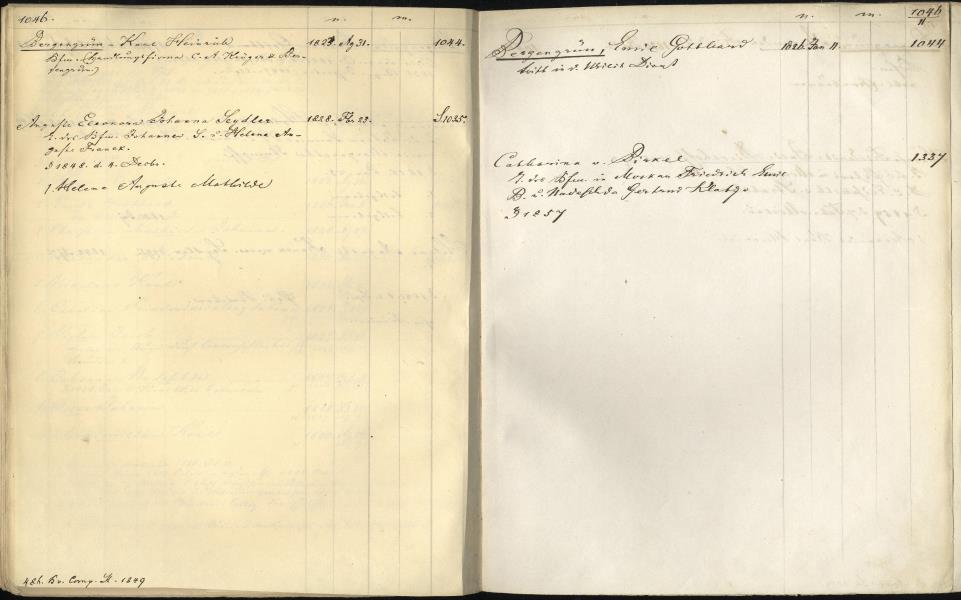 1046. n. m.
Bergengrün, Karl Heinrich 1823. Ag 31. 1044.
Bfm. (Handlungsfirma C. A. Krüger & Ber-
gengrün)
Auguste Eleonora Johanna Seydler 1828. Fb. 23. S. 1035.
T. des Bfm. Johannes S. u. Helene Au-
guste Franck.
1848. d. 4. Decbr.
1. Helena Auguste Mathilde
Bv. Comp. 1849
n. m. 1046
II
Bergengrün, Emil Gotthard 1826 Jan 11. 1044
tritt in d. Dienst
Catharina v. Dirkel 1337
T. des Bfm. in Moskau Friedrich Emil
B. u. Nadeschda Gertrud
1857